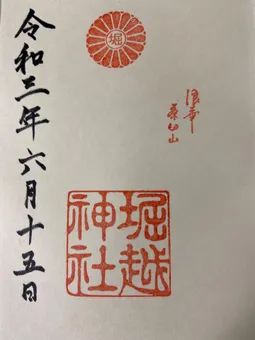 堀
浪華
茶臼山
堀越
神社
令和三年六月十五日